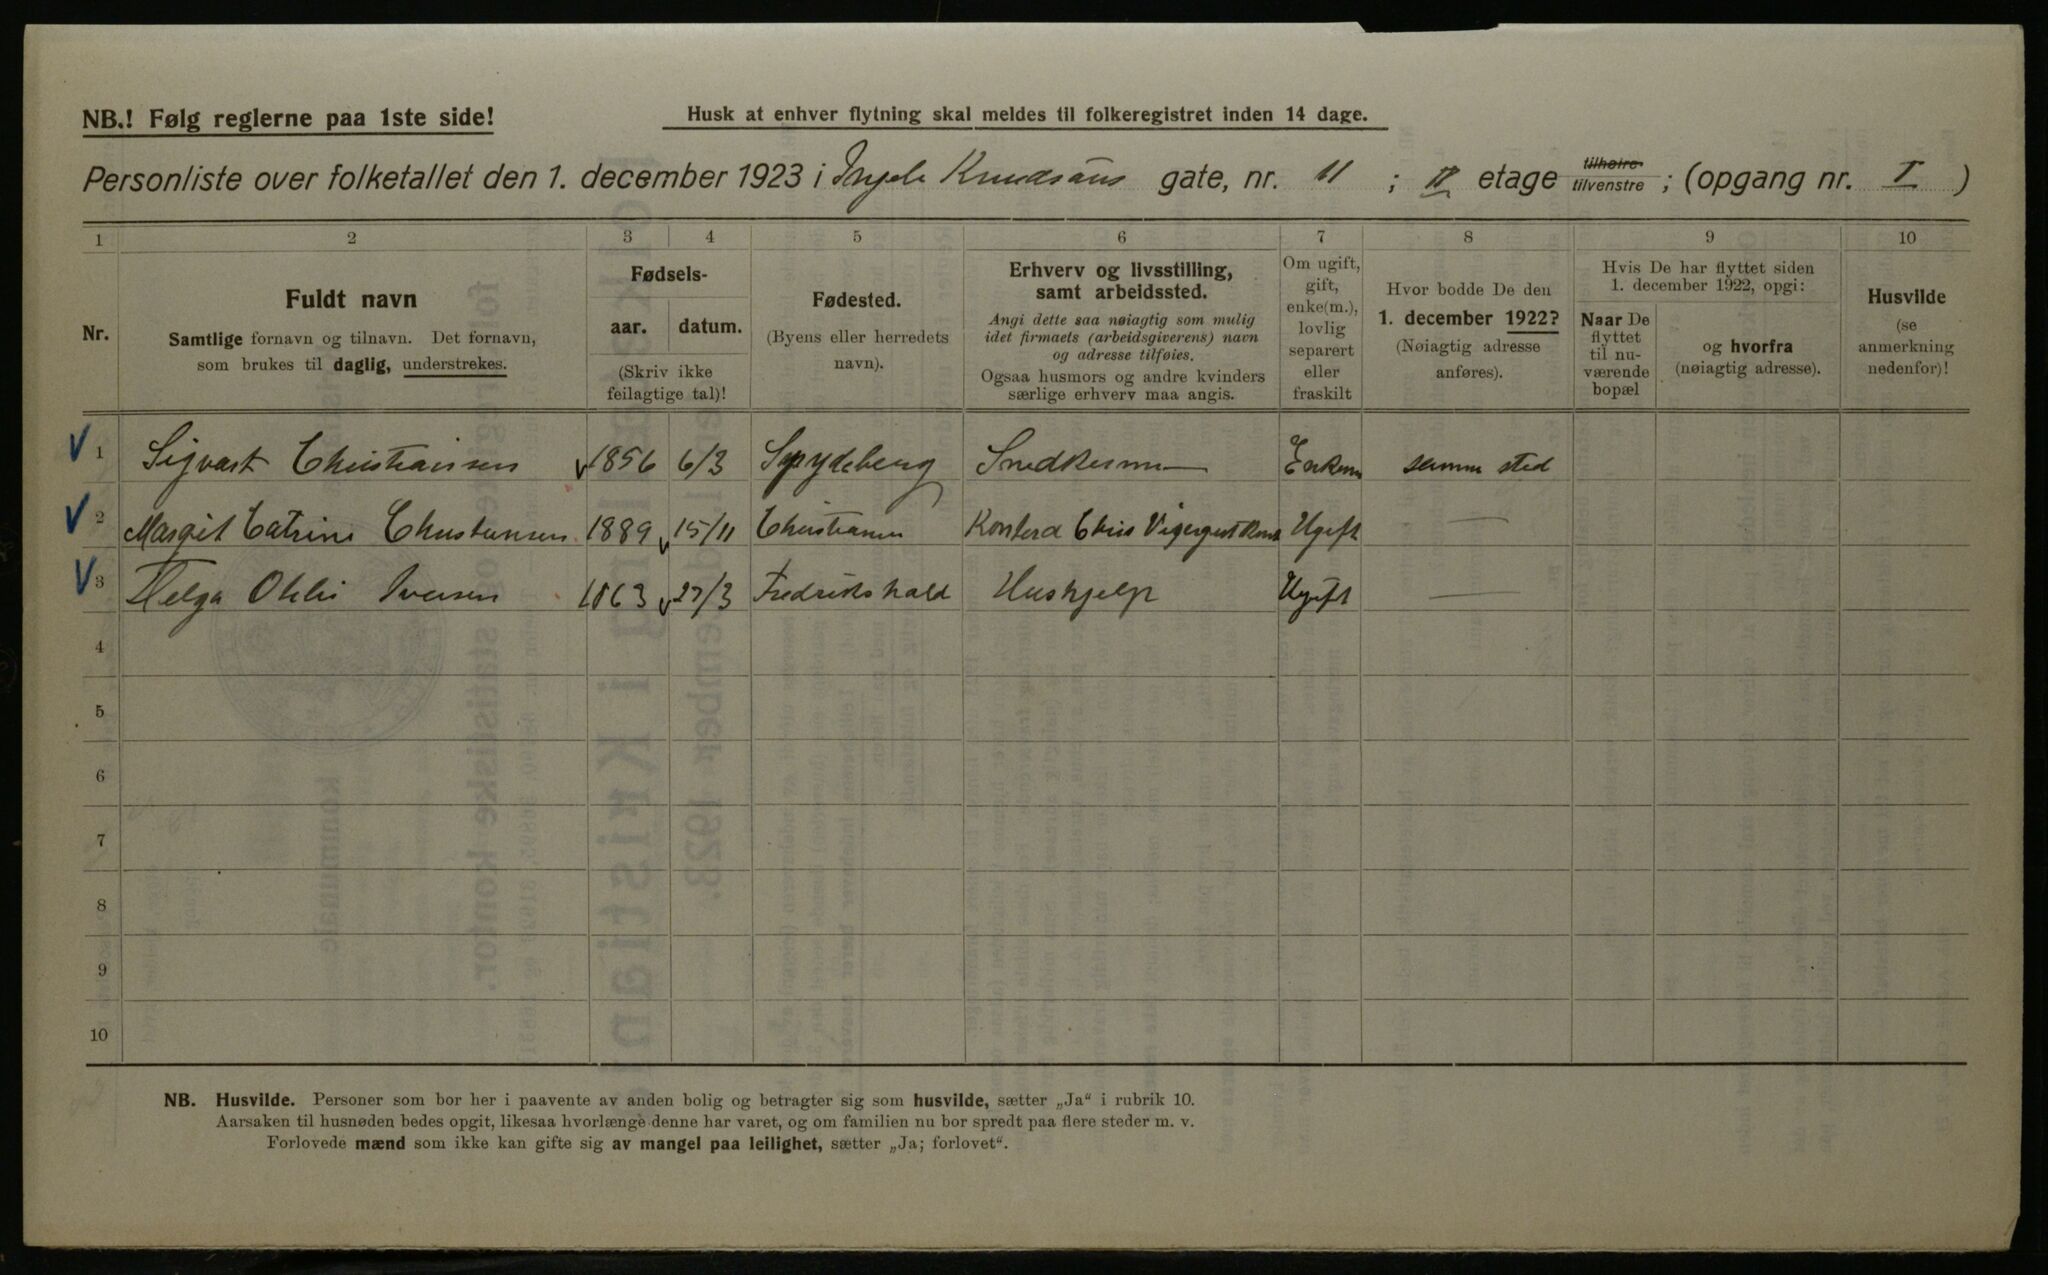 NB.! Følg reglerne paa 1ste side!
Husk at enhver flytning skal meldes til folkeregistret inden 14 dage.
Personliste over folketallet den 1. december 1923 i Knudsöns gate, nr. 11 ; II etage tilhøire tilvenstre ; (opgang nr. I )
1 2 3 4 5 6 7 8 9 10
Nr.
Fuldt navn
Samtlige fornavn og tilnavn. Det fornavn,
som brukes til daglig, understrekes.
Fødsels-
aar. datum.
(Skriv ikke
feilagtige tal)!
Fødested.
(Byens eller herredets
navn).
Erhverv og livsstilling,
samt arbeidssted.
Angi dette saa nøiagtig som mulig
idet firmaets (arbeidsgiverens) navn
og adresse tilføies.
Ogsaa husmors og andre kvinders
særlige erhverv maa angis.
Om ugift,
gift,
enke(m.),
lovlig
separert
eller
fraskilt
Hvor bodde De den
1. december 1922?
(Nøiagtig adresse
anføres).
Hvis De har flyttet siden
1. december 1922, opgi:
Naar De
flyttet
til nu-
værende
bopæl
og hvorfra
(nøiagtig adresse).
Husvilde
(se
anmerkning
nedenfor)!
1 Sigvart Christiansen 1856 6/3 Spydeberg Enkem samme sted
2 Margit Catrine Christiansen 1889 15/11 Christiania Ugift —
3 Helga Iversen 1863 27/3 Fredrikshald Hushjelp Ugift —
4
5
6
7
8
9
10
NB. Husvilde. Personer som bor her i paavente av anden bolig og betragter sig som husvilde, sætter „Ja" i rubrik 10.
Aarsaken til husnøden bedes opgit, likesaa hvorlænge denne har varet, og om familien nu bor spredt paa flere steder m. v.
Forlovede mænd som ikke kan gifte sig av mangel paa leilighet, sætter „Ja; forlovet".